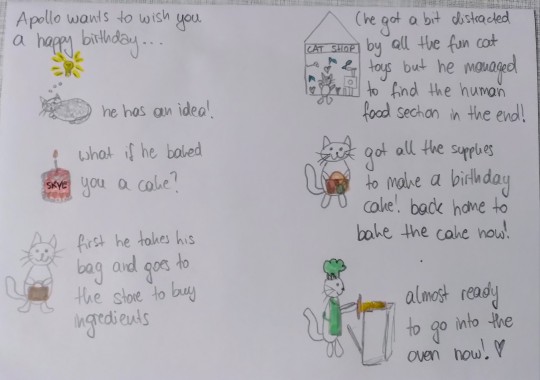 Apollo wants to wish you
a happy birthday...
he has an idea!
what if he baked
you a cake?
SKYE
first he takes his
bag and goes to
the store to buy
ingredients
(he got a bit distracted
by all the fun cat
toys but he managed
to find the human
food section in the end!
CAT SHOP
got all the supplies
to make a birthday
cake! back home to
bake the cake now!
almost ready
to go into the
oven now! ♡